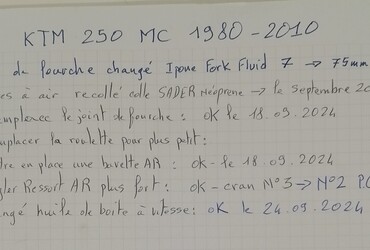 KTM 250 MC 1980-2010
de fourche changé Ipone Fork Fluid 7 → 75mm
es à air recollé colle SADER Néoprene → le septembre 20
emplacer le joint de fourche : ok le 18.09.2024
mplacer la roulette pour plus petit :
tre en place une bavette AR : ok - le 18.09.2024
gler Ressort AR plus fort : ok - cran N°3 → N°2
ngé huile de boite à vitesse : ok le 24.09.2024